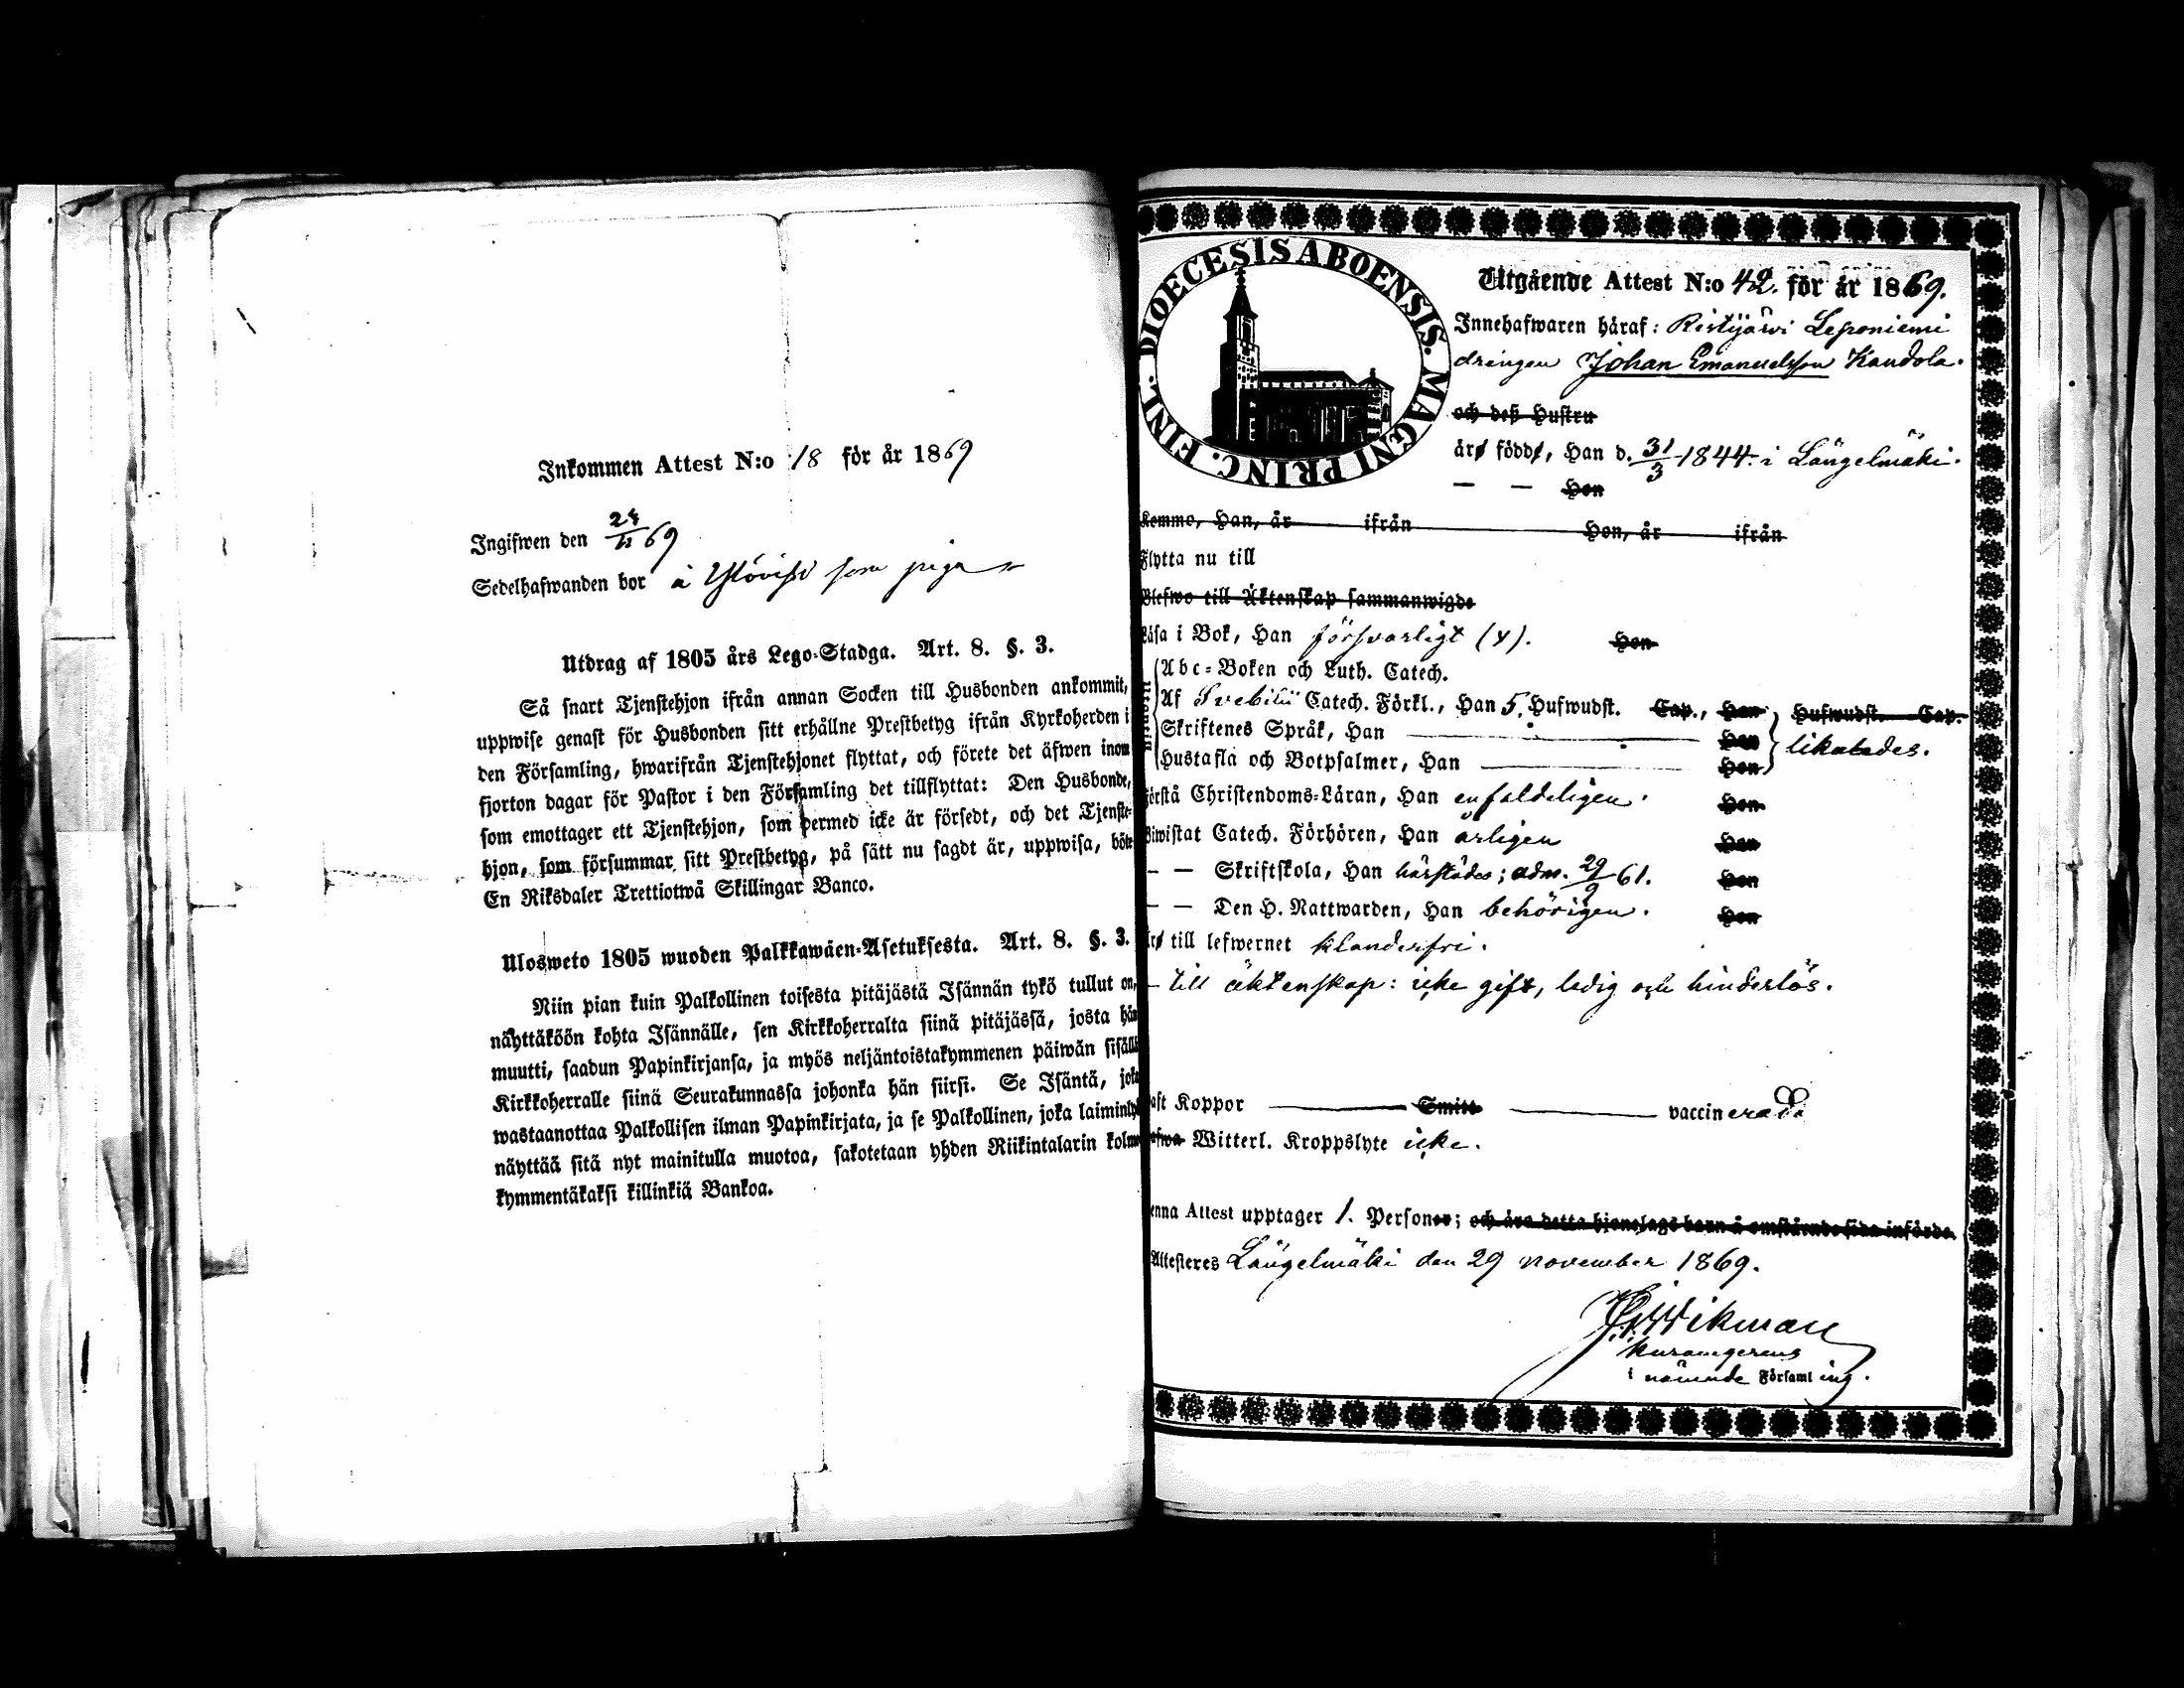 Inkommen Attest N:o 18 för år 1869
Ingifwen den 24/11 69
Sedelhafwanden bor å som piga
Utdrag af 1805 års Lego-Stadga. Art. 8. §. 3.
Så snart Tjenstehjon ifrån annan Socken till Husbonden ankommit,
uppwise genast för Husbonden sitt erhållne Prestbetyg ifrån Kyrkoherden i
den Församling, hwarifrån Tjenstehjonet flyttat, och förete det äfwen inom
fjorton dagar för Pastor i den Församling det tillflyttat: Den Husbonde,
som emottager ett Tjenstehjon, som dermed icke är försedt, och det Tjenste-
hjon, som försummar sitt Prestbetyg, på sätt nu sagdt är, uppwisa, böte
En Riksdaler Trettiotwå Skillingar Banco.
Ulosweto 1805 wuoden Palkkawäen-Asetuksesta. Art. 8. §. 3.
Niin pian kuin Palkollinen toisesta pitäjästä Isännän tykö tullut on,
näyttäköön kohta Isännälle, sen Kirkkoherralta siinä pitäjässä, josta hän
muutti, saadun Papinkirjansa, ja myös neljäntoistakymmenen päiwän sisällä
Kirkkoherralle siinä Seurakunnassa johonka hän siirsi. Se Isäntä, joka
wastaanottaa Palkollisen ilman Papinkirjata, ja se Palkollinen, joka laiminlyö
näyttää sitä nyt mainitulla muotoa, sakotetaan yhden Riikintalarin kolme
kymmentäkaksi killinkiä Bankoa.
DIOECESIS ABOENSIS. MAGNI PRINC. FINL.
Utgående Attest N:o 42. för år 1869.
Innehafwaren häraf: Ristijärwi Leponiemi
drängen Johan Emanuelsson Kaudola.
och deß Hustru
äro födde, Han d. 31/3 1844. i Längelmäki.
— — Hon
Komme, Han, år ifrån Hon, år ifrån
Flytta nu till
Blefwo till Äktenskap sammanwigde
Läsa i Bok, Han försvarligt (4). Hon
Abc-Boken och Luth. Catech.
Af Svebilii Catech. Förkl., Han 5. Hufwudst. Cap., Hon Hufwudst. Cap.
Skriftenes Språk, Han — Hon likaledes.
Hustafla och Botpsalmer, Han — Hon
Förstå Christendoms-Läran, Han enfaldeligen. Hon
Biwistat Catech. Förhören, Han årligen Hon
— — Skriftskola, Han härstädes; adm. 29/9 61. Hon
— — Den H. Nattwarden, Han behörigen. Hon
Äro till lefwernet klanderfri.
— till äktenskap: icke gift, ledig och hinderlös.
Haft Koppor — Smitt — vaccinerad.
Hafwa Witterl. Kroppslyte icke.
Denna Attest upptager 1. Personer; och äro detta hjonelags barn å omstående sida införda.
Attesteres Längelmäki den 29 november 1869.
Wikman
i nämnde Församling.